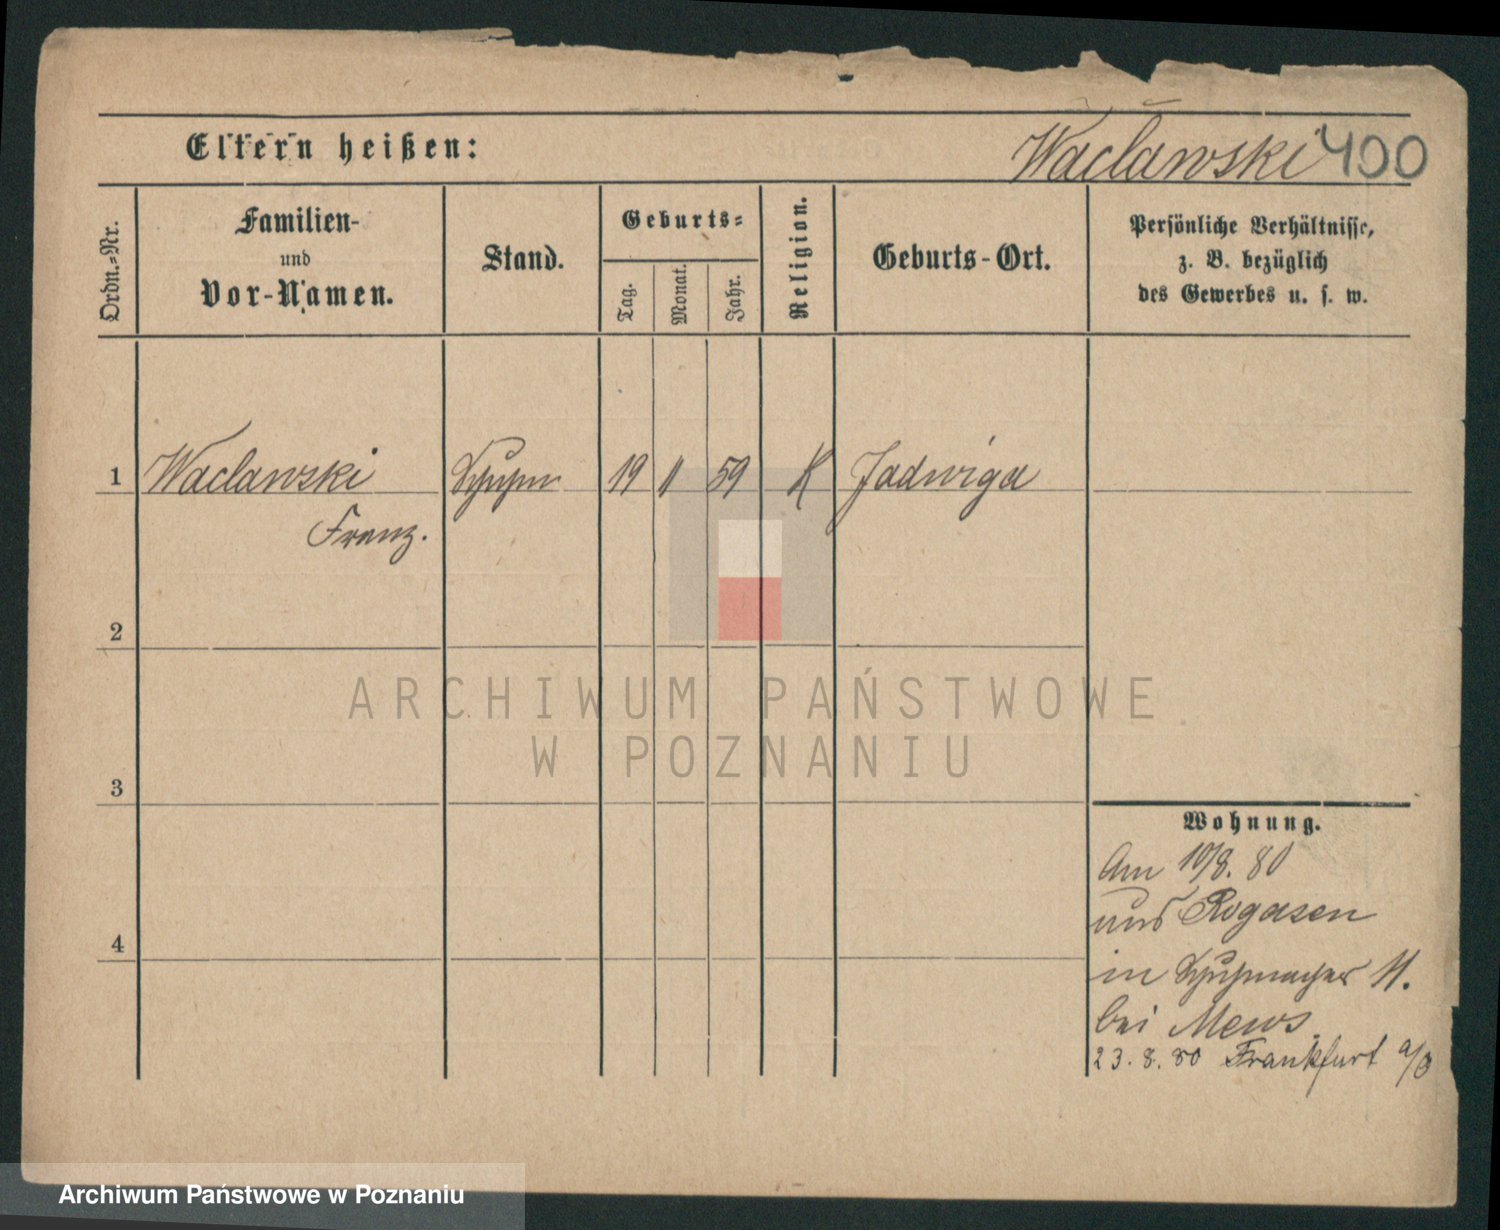 Eltern heißen:
Wacławski 400
Ordn.-Nr.
Familien-
und
Vor-Namen.
Stand.
Geburts-
Tag.
Monat.
Jahr.
Religion.
Geburts-Ort.
Persönliche Verhältnisse,
z. B. bezüglich
des Gewerbes u. s. w.
1 Waclawski Schuhm 19 11 59 K Jadwiga
Franz.
2
ARCHIWUM PAŃSTWOWE
W POZNANIU
3
Wohnung.
Am 10/8. 80
aus Rogasen
in Schuhmacher 11.
bei Mews
4
23.8.80 Frankfurt a/O
Archiwum Państwowe w Poznaniu